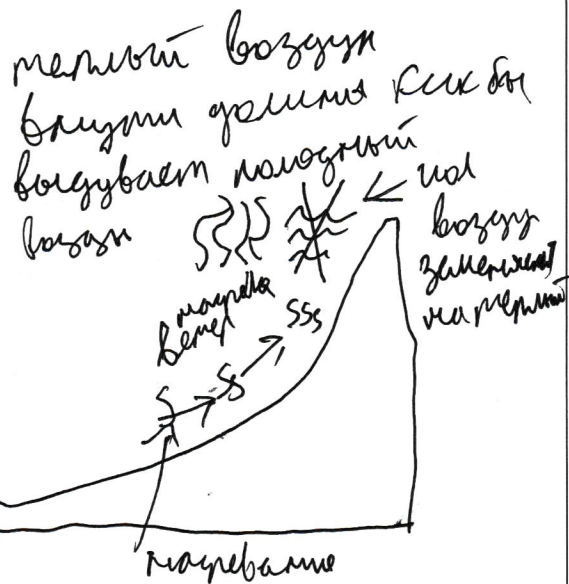 теплый воздух
внизу долины как бы
выдувает холодный
воздух
хол
воздух
заменяется
на теплый
нагрева
ветер
SSS
нагревание